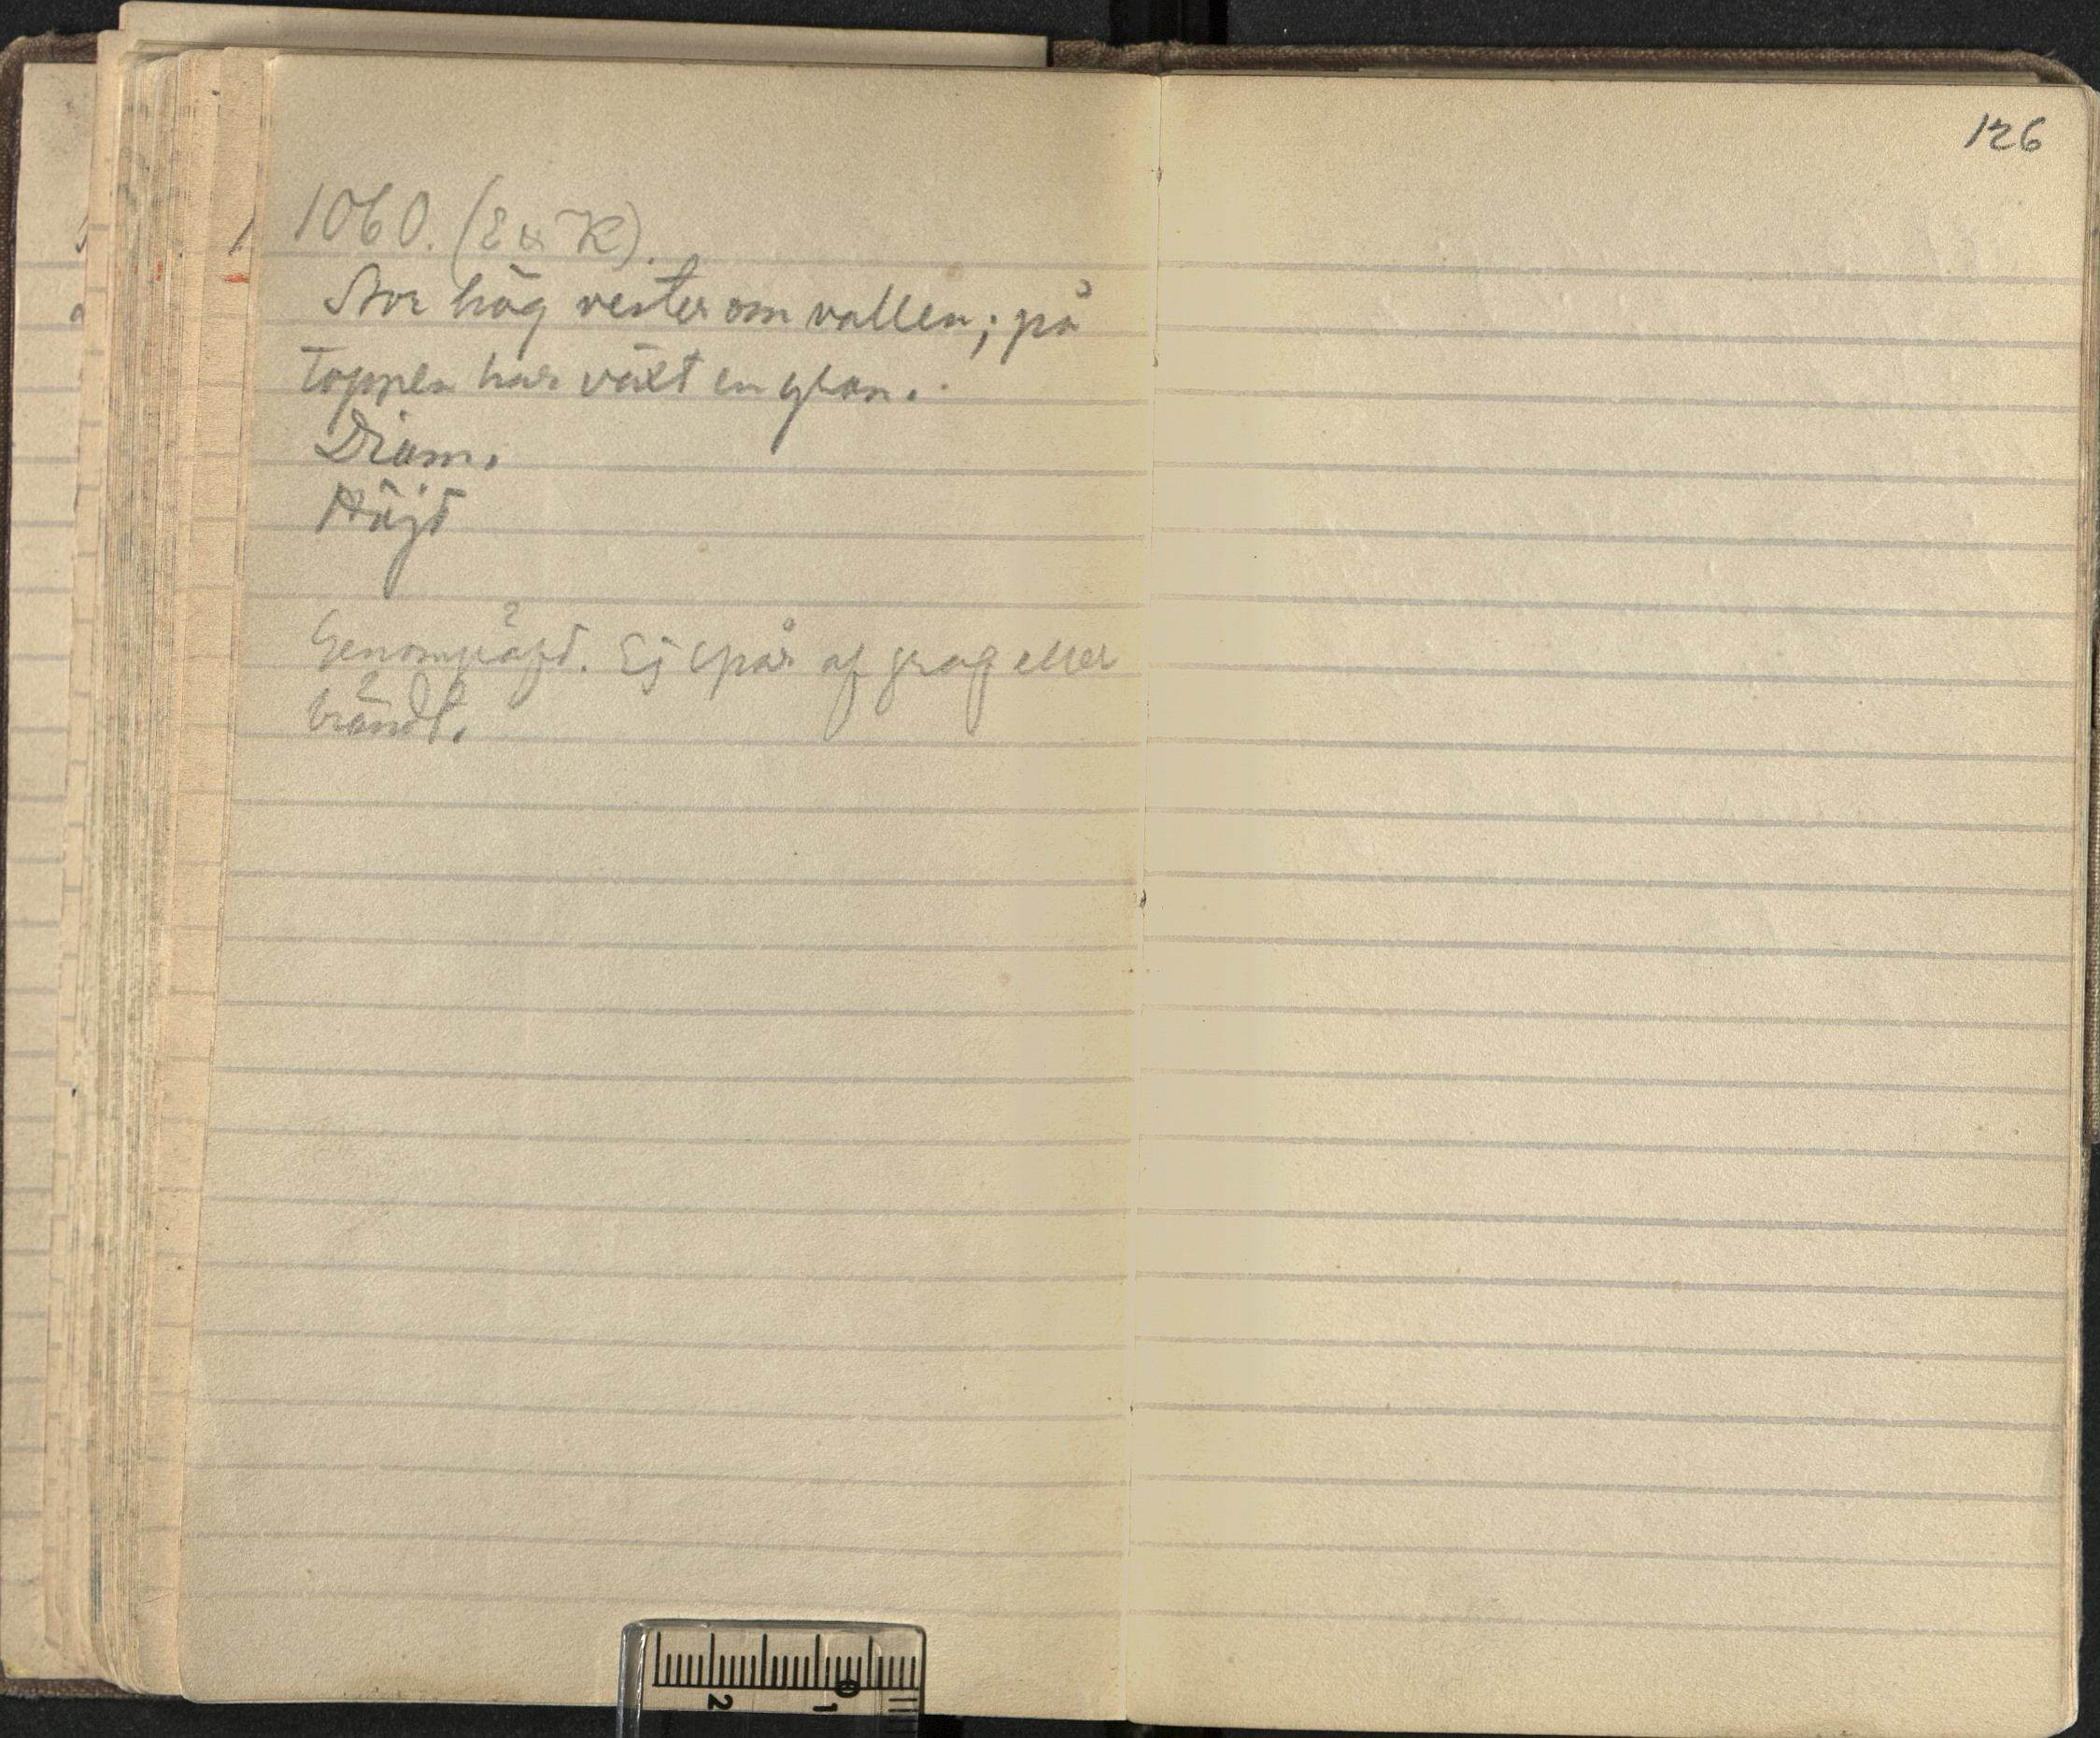 1060. (E & K).
Stor hög vester om vallen; på
toppen har växt en gran.
Diam.
Höjd
Ej spår af graf eller
brändt.
126